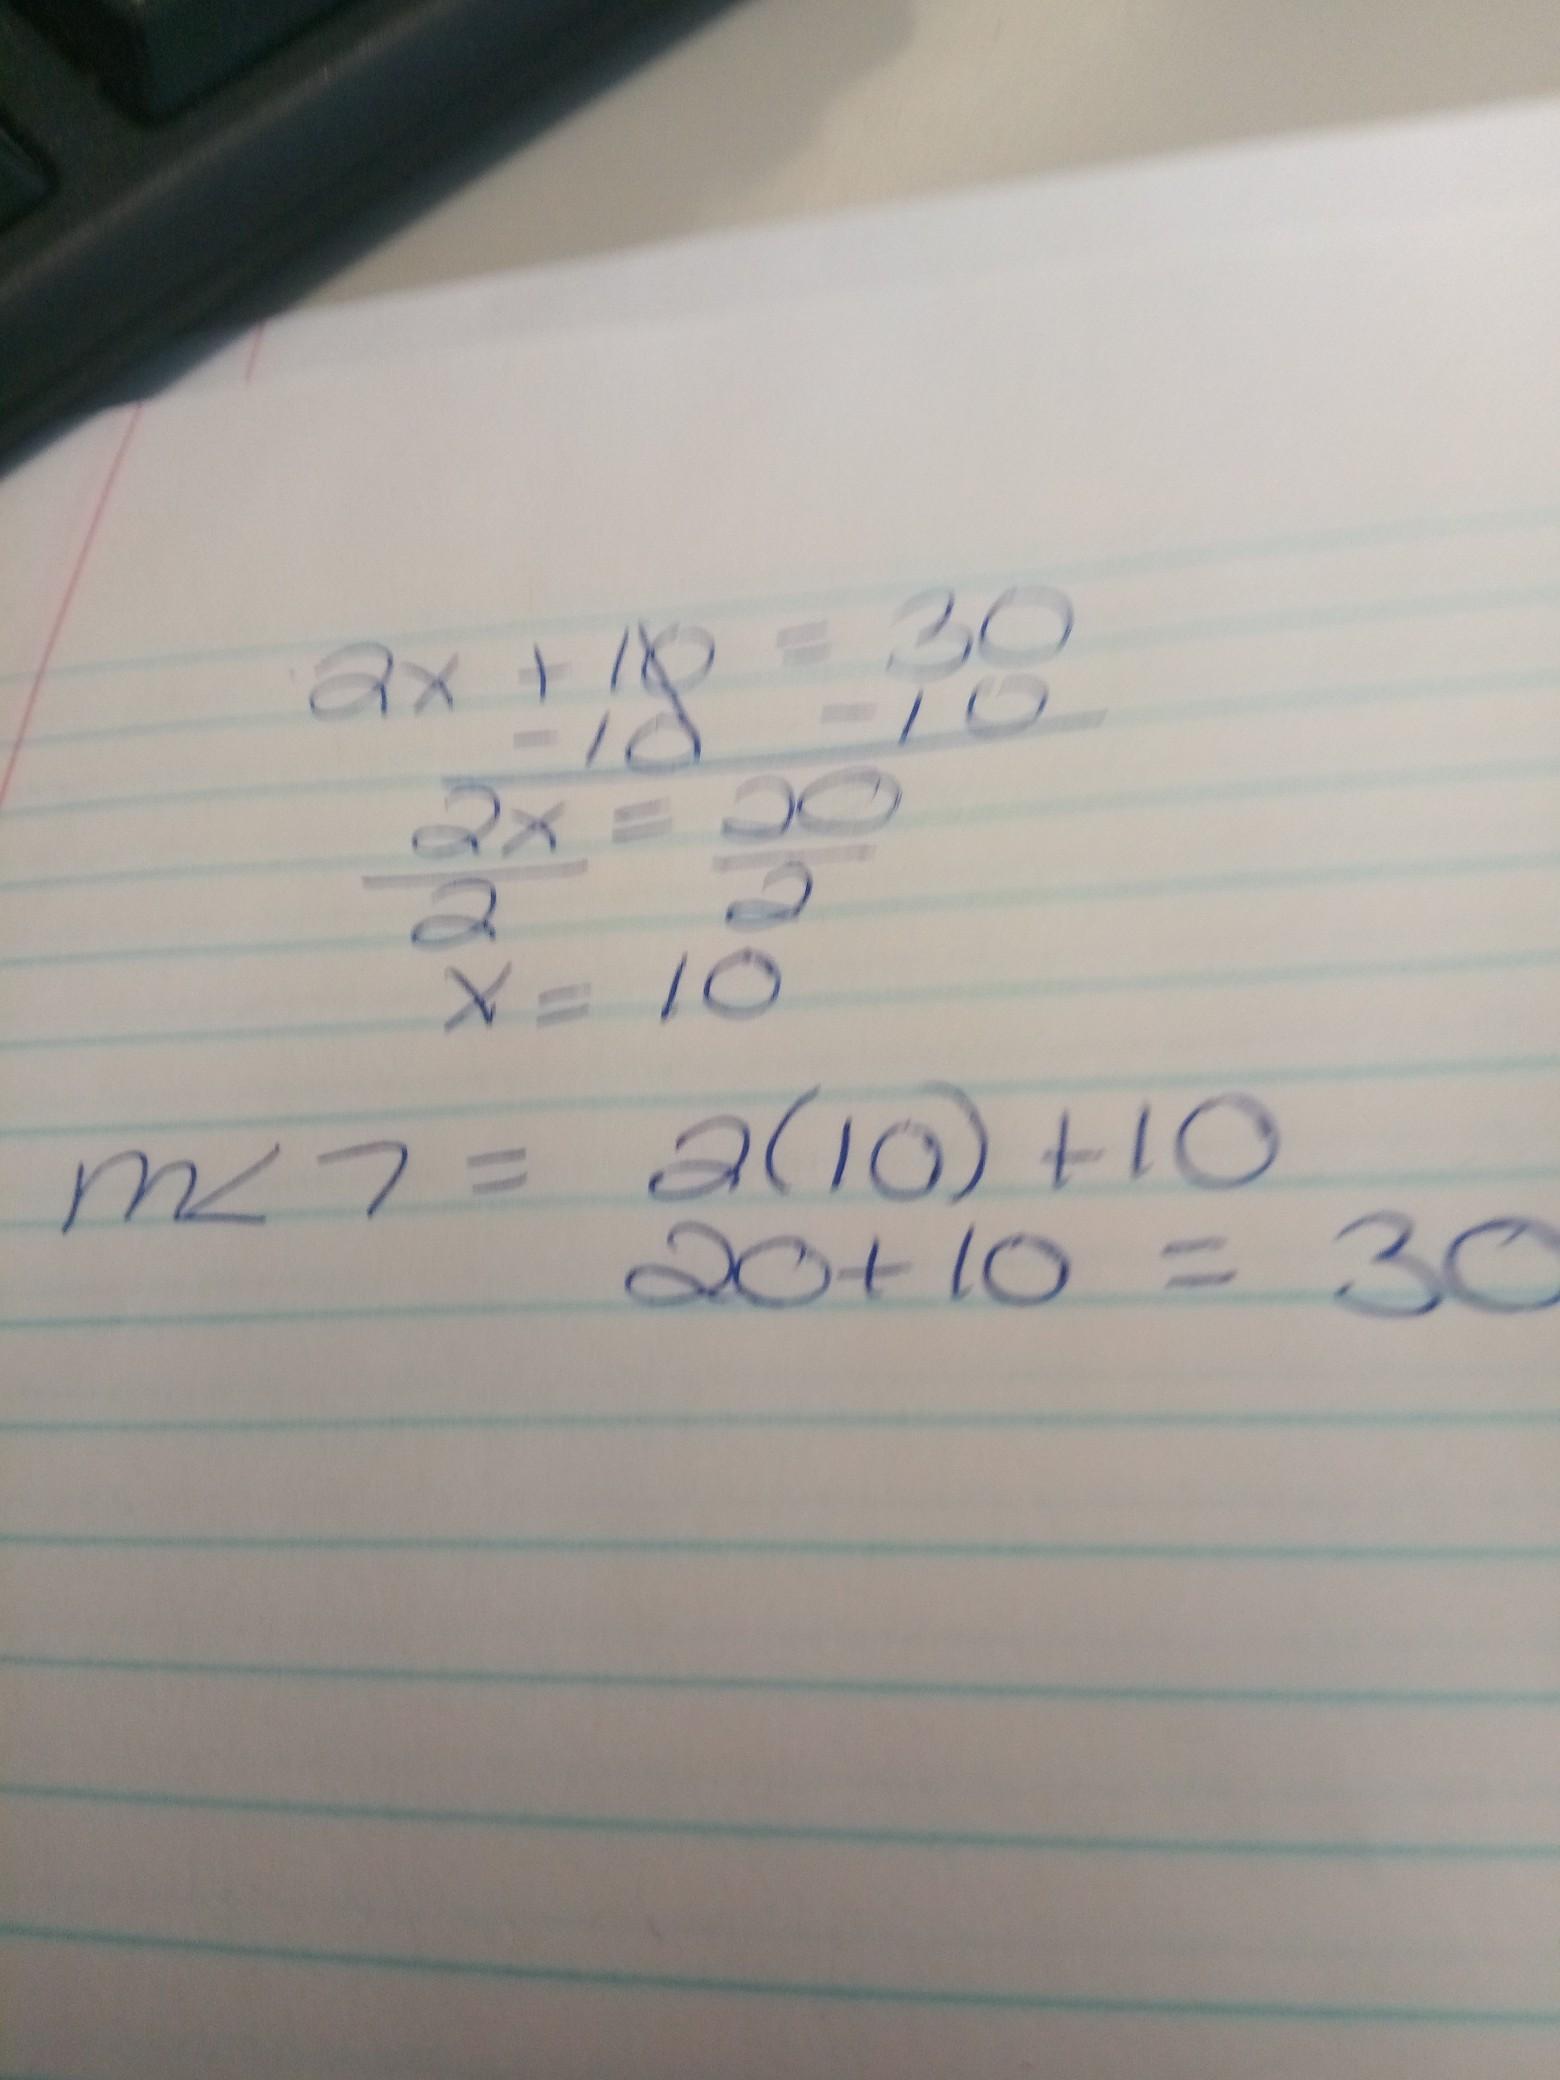 2x + 10 = 30
-10 -10
2x = 20
2 2
x = 10
m< 7 = 2(10) +10
20+10 = 30